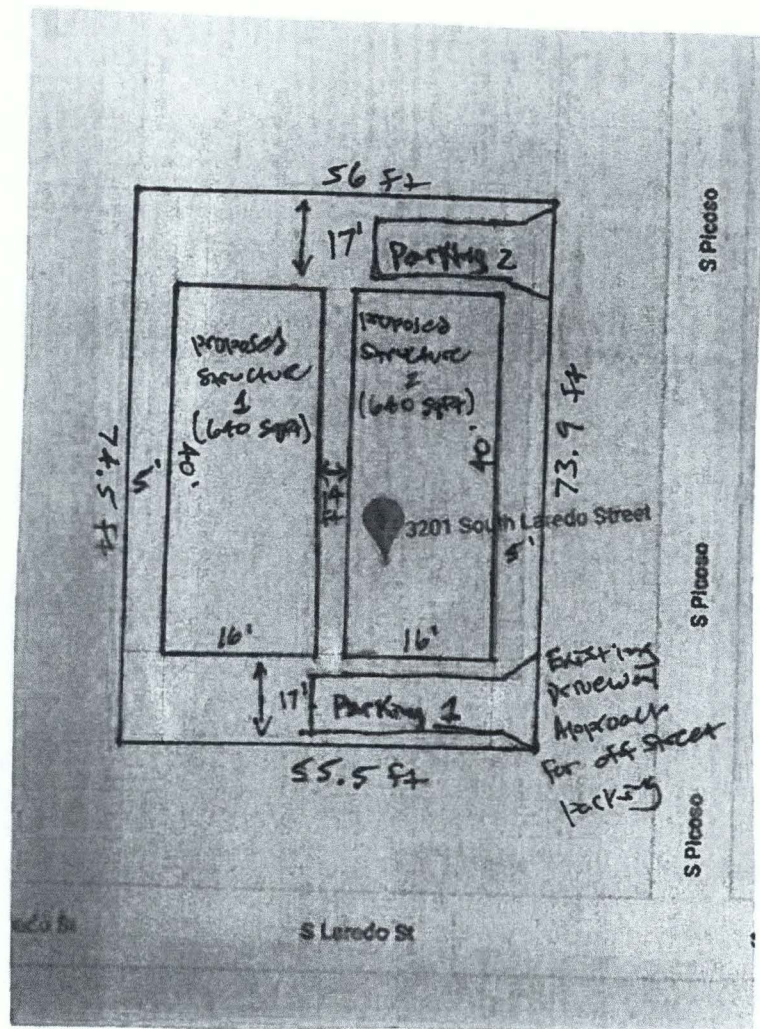 56 ft
17'
Parking 2
S Picoso
proposed
structure
1
(640 sqft)
proposed
structure
2
(640 sqft)
74.5 ft
5'
40'
40'
73.9 ft
3201 South Laredo Street
5'
S Picoso
16'
16'
17'
Parking 1
Existing
Approach
for off street
parking
55.5 ft
S Picoso
S Laredo St